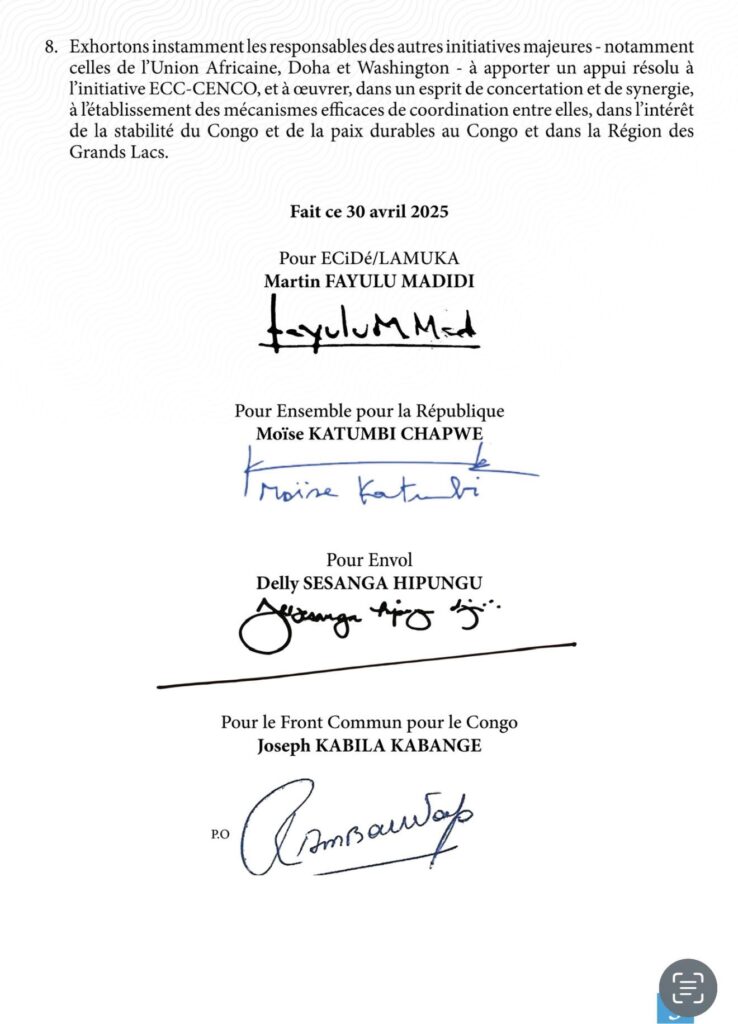 8. Exhortons instamment les responsables des autres initiatives majeures - notamment
celles de l'Union Africaine, Doha et Washington - à apporter un appui résolu à
l'initiative ECC-CENCO, et à œuvrer, dans un esprit de concertation et de synergie,
à l'établissement des mécanismes efficaces de coordination entre elles, dans l'intérêt
de la stabilité du Congo et de la paix durables au Congo et dans la Région des
Grands Lacs.
Fait ce 30 avril 2025
Pour ECiDé/LAMUKA
Martin FAYULU MADIDI
Fayulu M Mad
Pour Ensemble pour la République
Moïse KATUMBI CHAPWE
Moïse Katumbi
Pour Envol
Delly SESANGA HIPUNGU
Pour le Front Commun pour le Congo
Joseph KABILA KABANGE
P.O